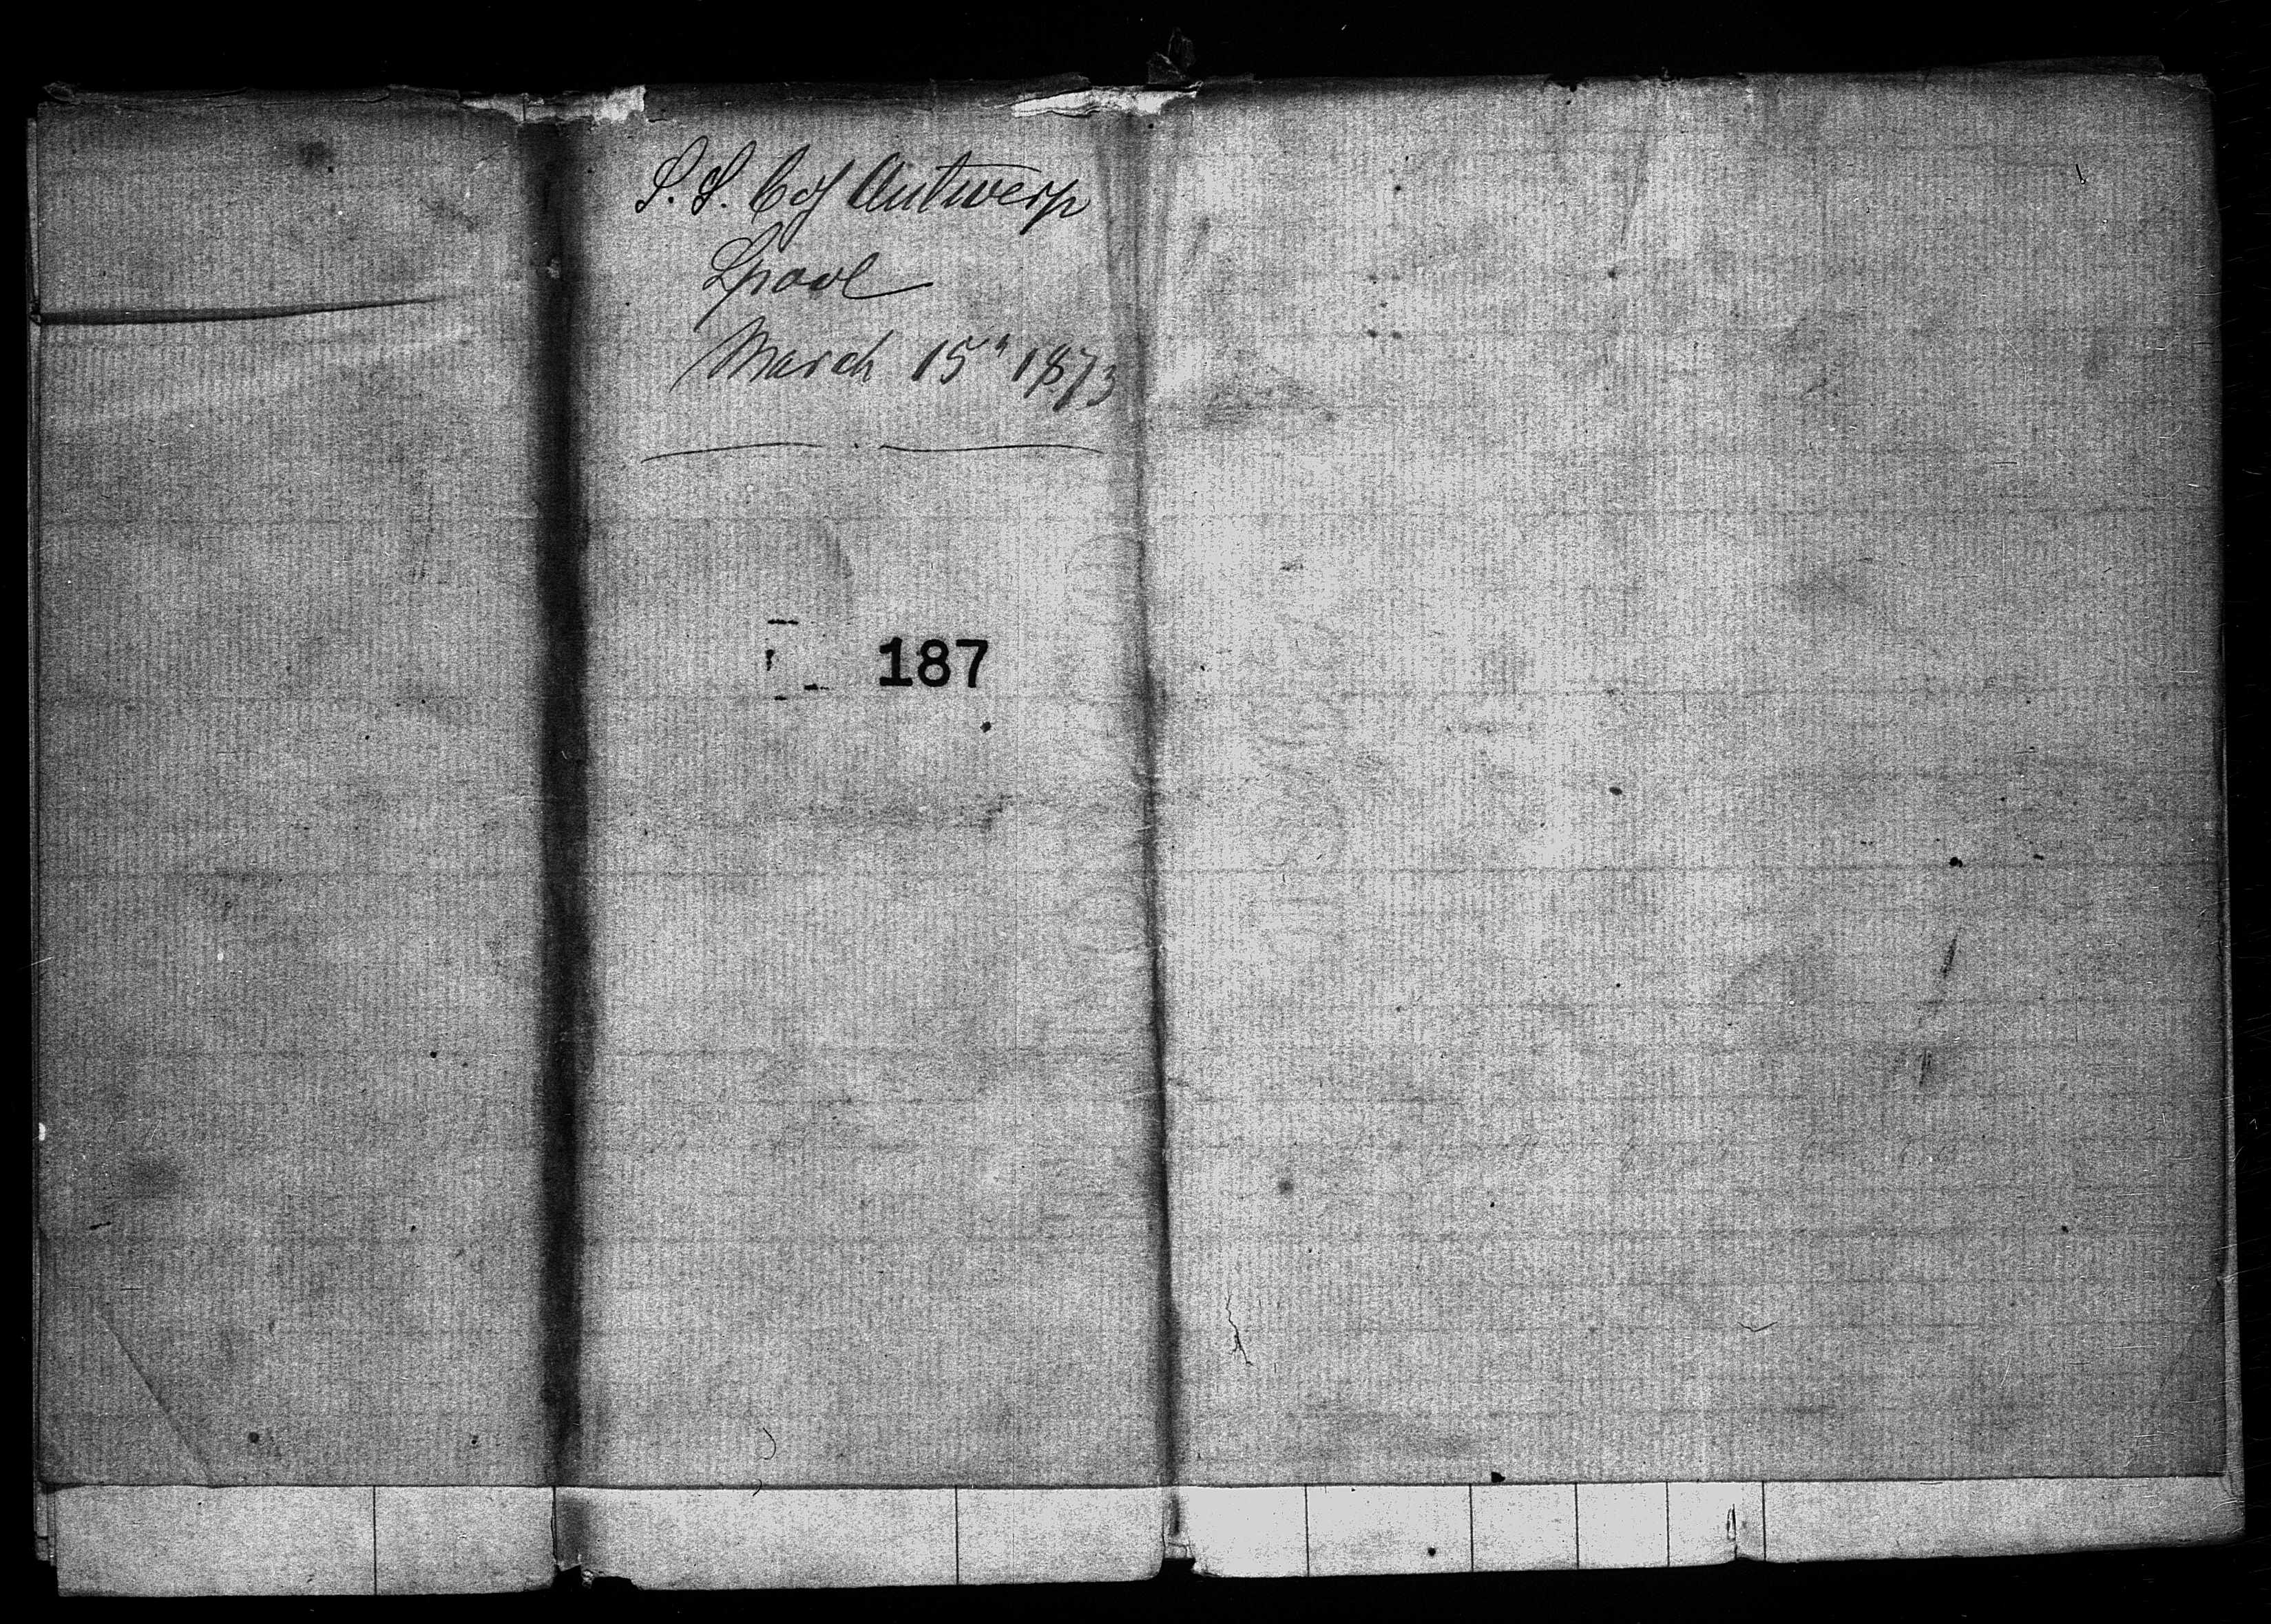 S. S. Cy Antwerp
Lpool
March 15" 1873
187